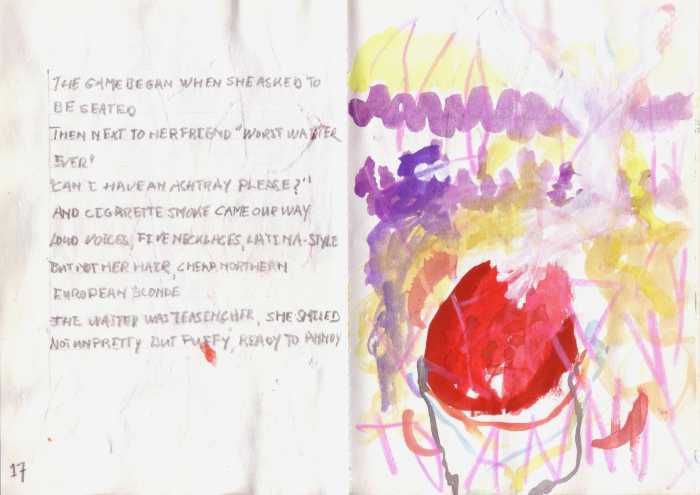 THE GAME BEGAN WHEN SHE ASKED TO
BE SEATED
THEN NEXT TO HER FRIEND "WORST WAITER
EVER"
"CAN I HAVE AN ASHTRAY PLEASE?"
AND CIGARETTE SMOKE CAME OUR WAY
LOUD VOICES, FIVE NECKLACES, LATINA-STYLE
BUT NOT HER HAIR, CHEAP NORTHERN
EUROPEAN BLONDE
THE WAITER WAS TEASING HER, SHE SMILED
NOT UNPRETTY BUT PUFFY, READY TO ANNOY
17